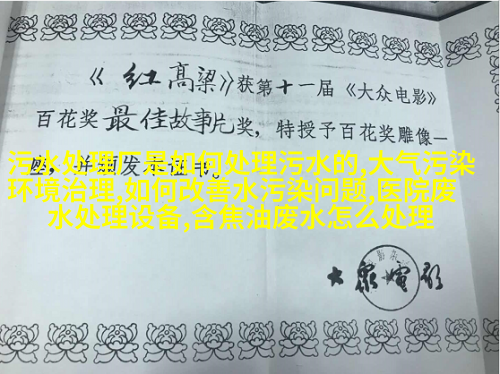 《红高粱》获第十一届《大众电影》
百花奖最佳故事片奖，特授予百花奖雕像一
座，并颁发证书。
污水处理厂是如何处理污水的,大气污染
环境治理,如何改善水污染问题,医院废
水处理设备,含焦油废水怎么处理
大眾電影